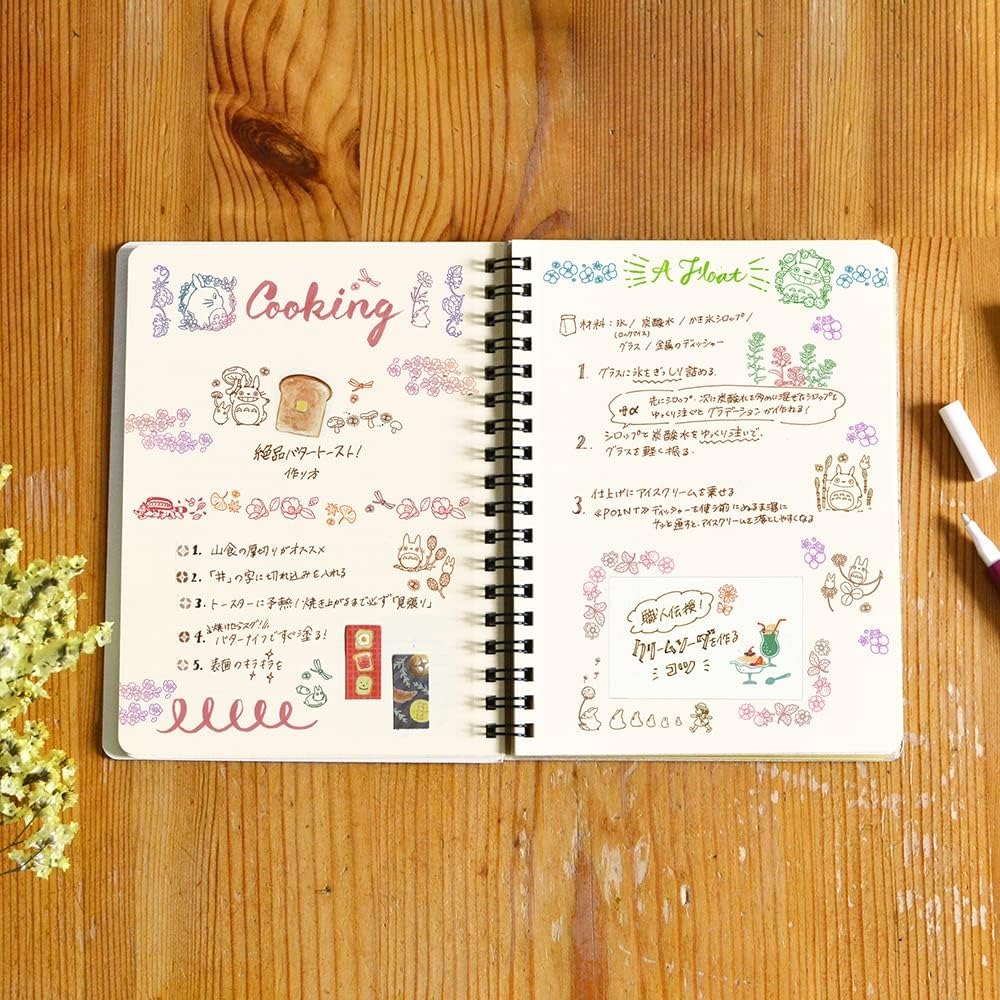 Cooking
絶品バタートースト!
作り方
1. 山食の厚切りがオススメ
2. 「井」の字に切れ込みを入れる
3. トースターに予熱!焼き上がるまで必ず「見張り」
4. 焼けたらスグ!!
バターナイフですぐ塗る!
5. 表面のキラキラを
A Float
材料:氷/炭酸水/かき氷シロップ/
(ロックアイス)
グラス/金属のディッシャー
1. グラスに氷をぎっしり詰める.
+α 先にシロップ・次に炭酸水を多めに混ぜたシロップを
ゆっくり注ぐとグラデーションが作れる!
2. シロップと炭酸水をゆっくり注いで、
グラスを軽く振る.
3. 仕上げにアイスクリームを乗せる
≪POINT≫ディッシャーを使う前にぬるま湯に
サッと通すと、アイスクリームを落としやすくなる
職人伝授!
クリームソーダを作る
コツ